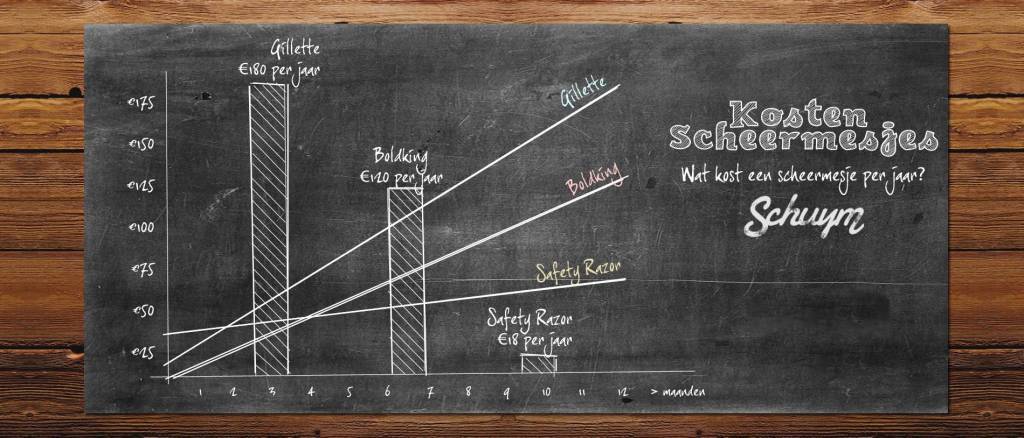 Gillette
€180 per jaar
€175
€150
€125
€100
€75
€50
€25
Boldking
€120 per jaar
Gillette
Boldking
Safety Razor
Safety Razor
€18 per jaar
1 2 3 4 5 6 7 8 9 10 11 12 > maanden
Kosten
Scheermesjes
Wat kost een scheermesje per jaar?
Schuym